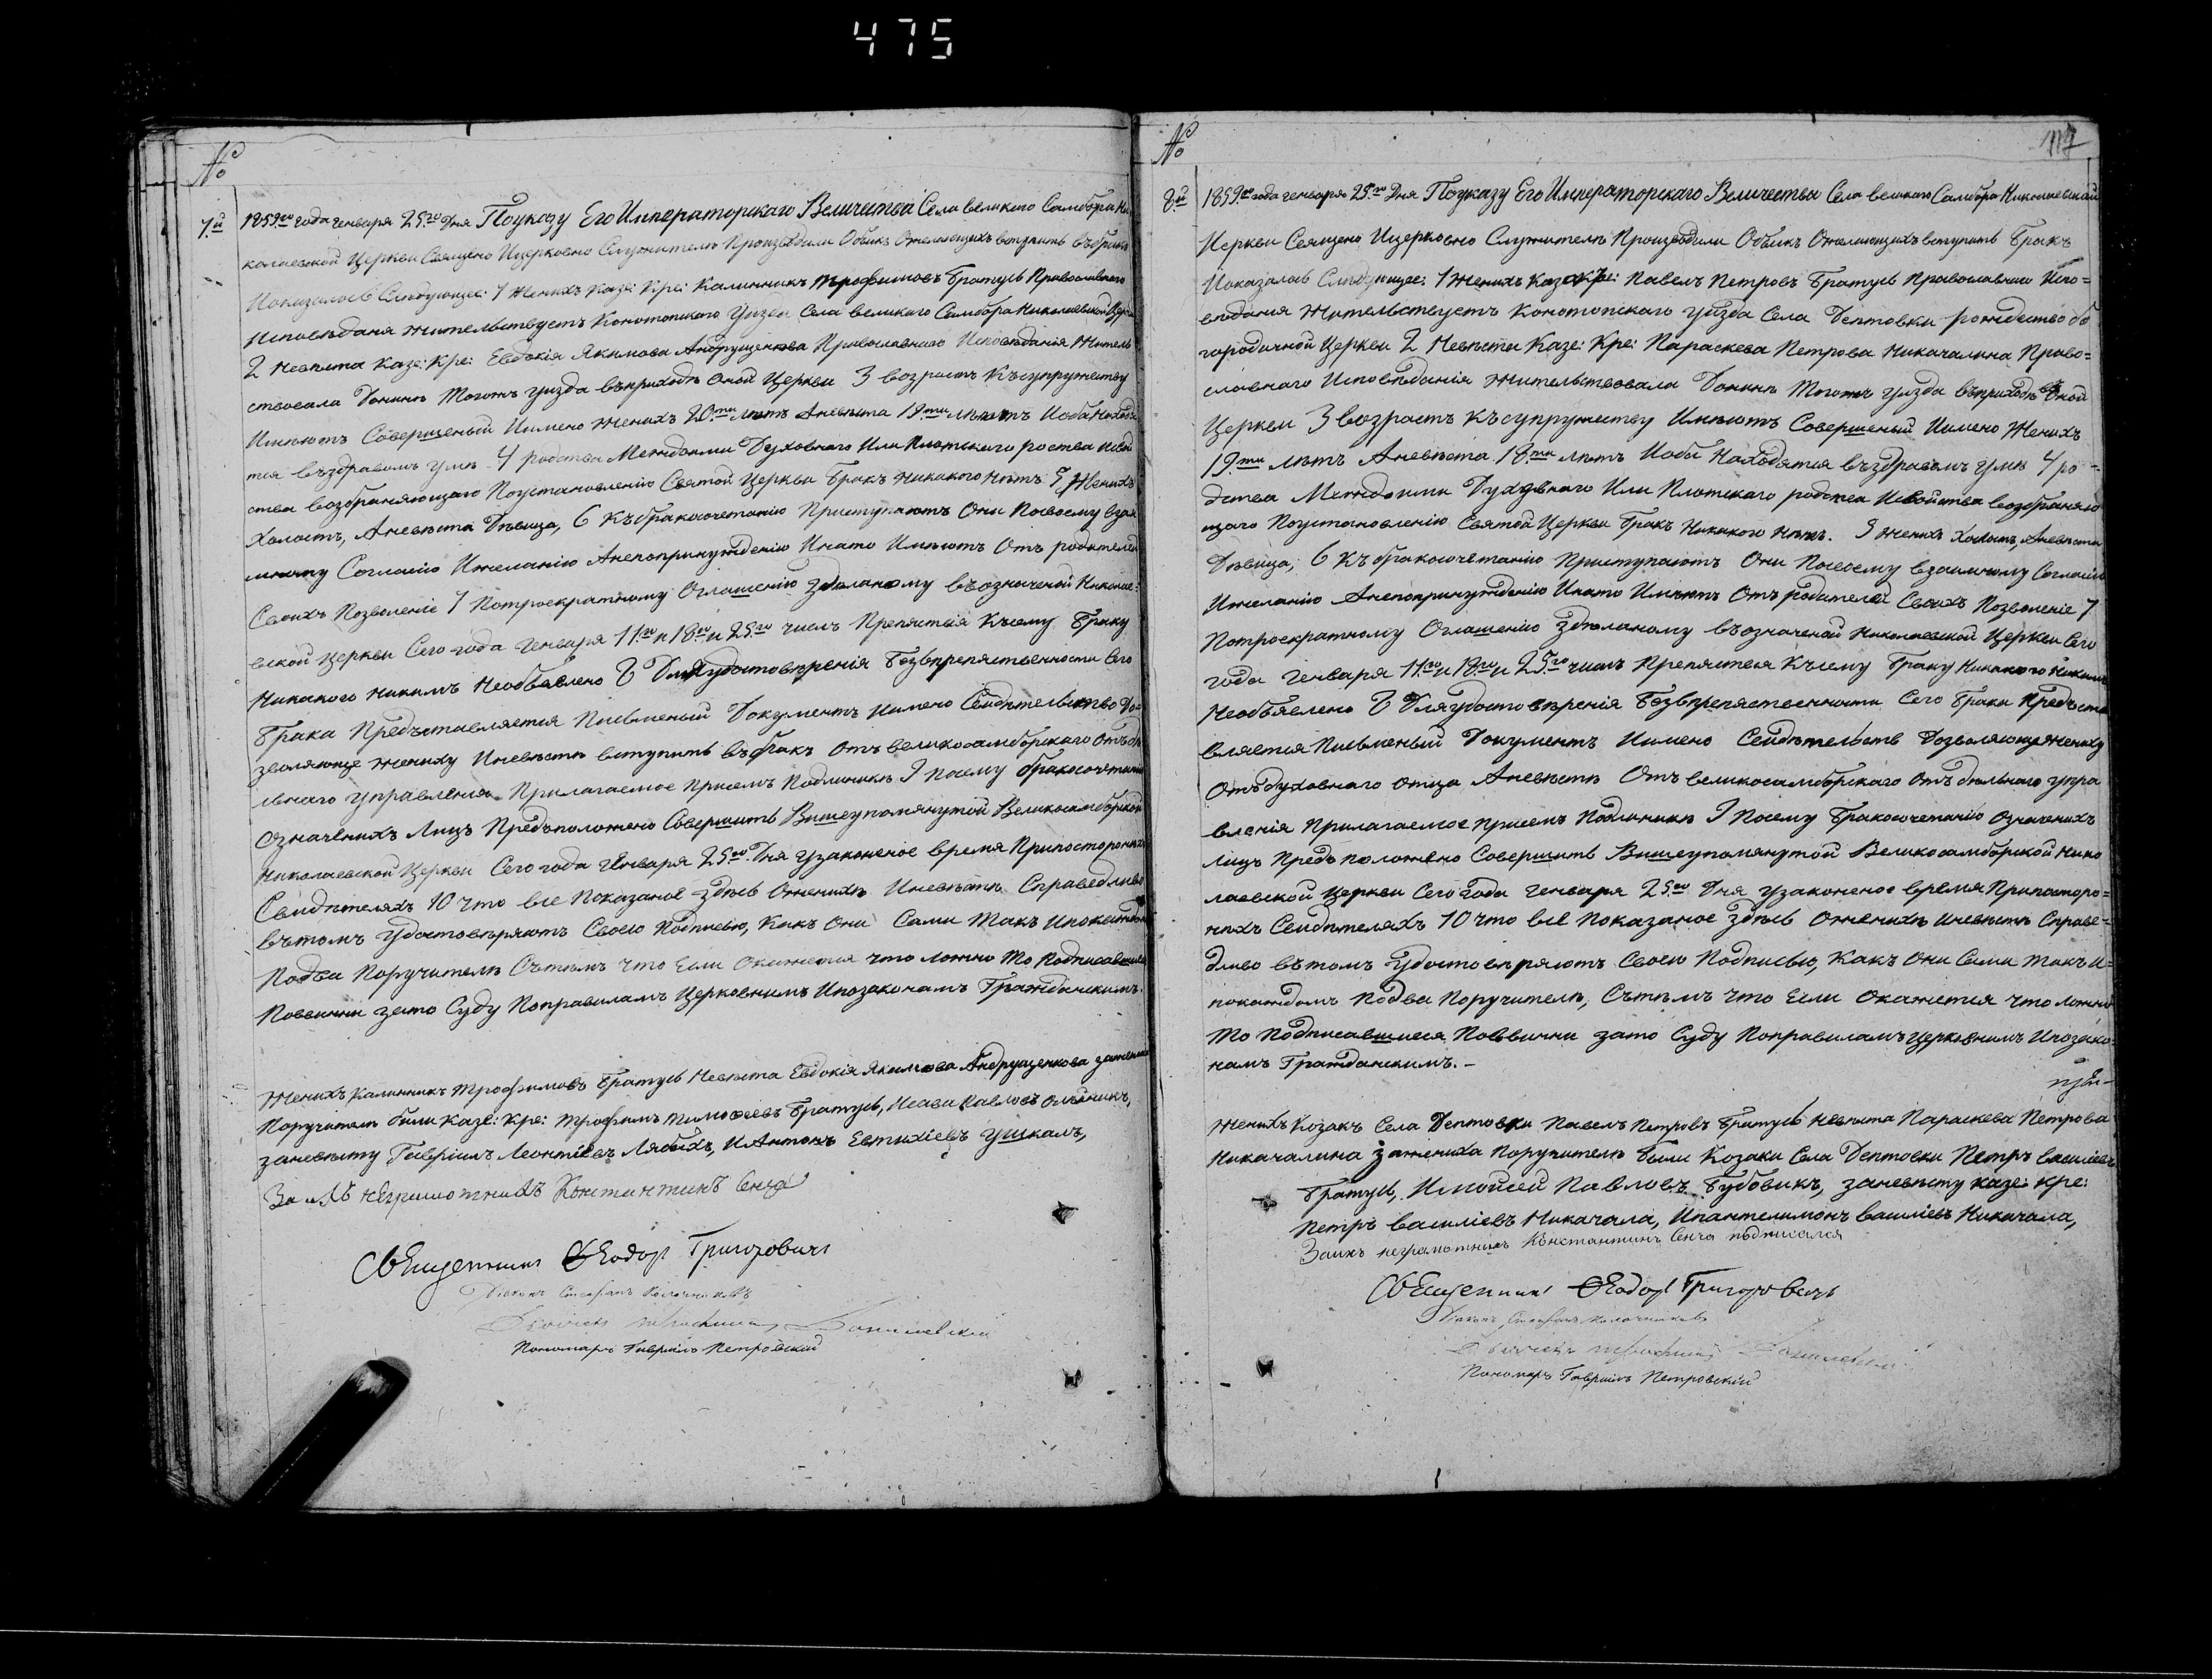 475
№
7.й 1859го года генваря 25.го дня Поуказу Его Императорскаго Величества Села великого Самбора Ни
колаевской Церкви Священо Ицерковно Служителѣ Производили Обыкъ Ожелающихъ вступить въбракъ
Иоказалось Слѣдующее: 1 Женихъ Казе: Кре: Калинникъ трофимовъ Братусь Православнаго
Исповѣданя жительствуетъ Конотопского Уизда Села великого Самбора Николаевской Церкви
2 Невѣста Казе: Кре: Евдокія Якимова Андрущенкова Православного Исповѣданія житель
ствовала Донинѣ Тогожъ уизда въприходѣ Оной Церкви 3 возрастъ Късупружеству
Имѣютъ Совершеный Иимено женихъ 20.ти лѣтъ Аневѣста 19ти лѣтъ Иоба находя
тся въздравомъ умѣ 4 родства Междоими Духовнаго Или Плотскаго роства Исвой
ства возбраняющаго Поустановленію Святой Церкви Бракъ никакого нѣтъ 5 Женихъ
Холостъ, Аневѣста Дѣвица, 6 Къбракосочетанію Приступаютъ Они Посвоему взаи
мному Согласію Ижеланію Анепопринужденію Инато Имѣютъ Отъ родителей
Своихъ Позволеніе 7 Потроекратному Оглашенію Здѣланому въозначеной Николае:
вской Церкви Сего года Генваря 11го и 18го и 25.го числъ Препятствія Късему Браку
Никакого никимъ Необъявлено 8 Дляудостовѣренія Безвпрепятственности Сего
Брака Предъставляется Писменый Документъ Иимено Свидѣтельство До=
зволяюще жениху Иневѣстѣ вступить въбракъ отъ великосамборскаго Отъдѣ
льнаго управленія Прилагаемое присемъ Подлиникѣ 9 Посему бракосочетанію
Означенихъ Лицъ Предъположено Совершить Вишеупомянутой Великосамборской
Николаевской Церкви Сего года Генваря 25го Дня узаконеное время Припостороннхъ
Свидѣтеляхъ 10 что все Показаное здѣсь Оженихѣ Иневѣстѣ Справедливо
вътомъ Удостовѣряютъ Своею Подписью, Какъ Они Сами Такъ Ипокаждомъ
Подва Поручителѣ Сътимъ что Если Окажется что ложно То Подписавшися
Повинни зато Суду Поправиламъ Церковнимъ Ипозаконамъ Гражданскимъ.
Женихъ Калинникъ трофимовъ Братусь Невѣста Евдокія Якимова Андрущенкова зажениха
Поручители били Казе: Кре: трофимъ тимофеевъ Братусь, Исава Павловъ Олейникъ,
заневѣсту Гавріилъ Леонтіевъ Лябахъ, ИАнтонъ Евтихіевъ Ушкалъ,
За ихъ неграмотнихъ Константинъ Сенча
Священникъ Феодоръ Григоровичъ
Діаконъ Стефанъ Калачниковъ
Пономаръ Гавріилъ Петровскій
№
117
8й 1859.го года генваря 25.го Дня Поуказу Его Императорскаго Величества Села великаго Самбора Николаевской
Церкви Священо Ицерковно Служителѣ Производили Обыкъ Ожелающихъ вступить Бракъ
Иоказалось Слѣдующее: 1 Женихъ Казе: Кре: Павелъ Петровъ Братусь Православнаго Испо=
вѣданія Жительствуетъ Конотопскаго уизда Села Дептовки рождество бо
городичной Церкви 2 Невѣста Казе: Кре: Параскева Петрова Никачалина Право=
славнаго Исповѣданія Жительствовала Донинѣ Тогожъ уизда въприходѣ Оной
Церкви 3 возрастъ Късупружеству Имѣютъ Совершеный Иимено Женихъ
19.ти лѣтъ Аневѣста 18.ти лѣтъ Иоба Находятся въздравомъ умѣ 4 ро=
дства Междоими Духовнаго Или Плотскаго родства Исвойства возбраняю
щаго Поустановленію Святой Церкви Бракъ Никакого нѣтъ. 5 Женихъ Холостъ, Аневѣста
Дѣвица, 6 Къбракосочетанію Приступаютъ Они Посвоему взаимному Согласію
Ижеланію Анепопринужденію Инато Имѣютъ Отъ родителей Своихъ Позволеніе 7
Потроекратному Оглашенію Здѣланому въозначеной Николаевской Церкви Сего
года Генваря 11.го и 18.го и 25.го числъ Препятствія Късему Браку Никакого Никимъ
Необъявлено 8 Дляудостовѣренія Безвпрепятственности Сего Брака Предъста
вляется Писменый Документъ Иимено Свидѣтельств Дозволяюще Жениху
Отъдуховнаго отца Аневѣстѣ Отъ великосамборскаго Отъдѣльнаго упра
вленія Прилагаемое присемъ Подлиникѣ 9 Посему Бракосочетанію Означенихъ
Лицъ Предъположено Совершить Вишеупомянутой Великосамборской Нико
лаевской Церкви Сего года Генваря 25го Дня узаконеное время Припосторо=
нихъ Свидѣтеляхъ 10 что все Показаное здѣсь Оженихѣ Иневѣстѣ Справе=
дливо вътомъ Удостовѣряютъ Своею Подписью, Какъ Они Сами Такъ И=
покаждомъ Подва Поручителѣ, Сътимъ что Если Окажется что ложно
То Подписавшися Повинни зато Суду Поправиламъ церковнимъ Ипозако
намъ Гражданскимъ.-
Женихъ Козакъ Села Дептовки Павелъ Петровъ Братусь Невѣста Параскева Петрова
Никачалина Зажениха Поручителѣ Были Козаки Села Дептовки Петръ василіевъ
Братусь, Имойсей Павловъ Бубовикъ, заневѣсту казе: кре:
Петръ василіевъ Никачала, Ипантелимонъ василіевъ Никачала,
Заихъ неграмотнихъ Константинъ Сенча подписался
Священникъ Феодоръ Григоровичъ
Діаконъ Стефанъ Калачниковъ
Пономаръ Гавріилъ Петровскій